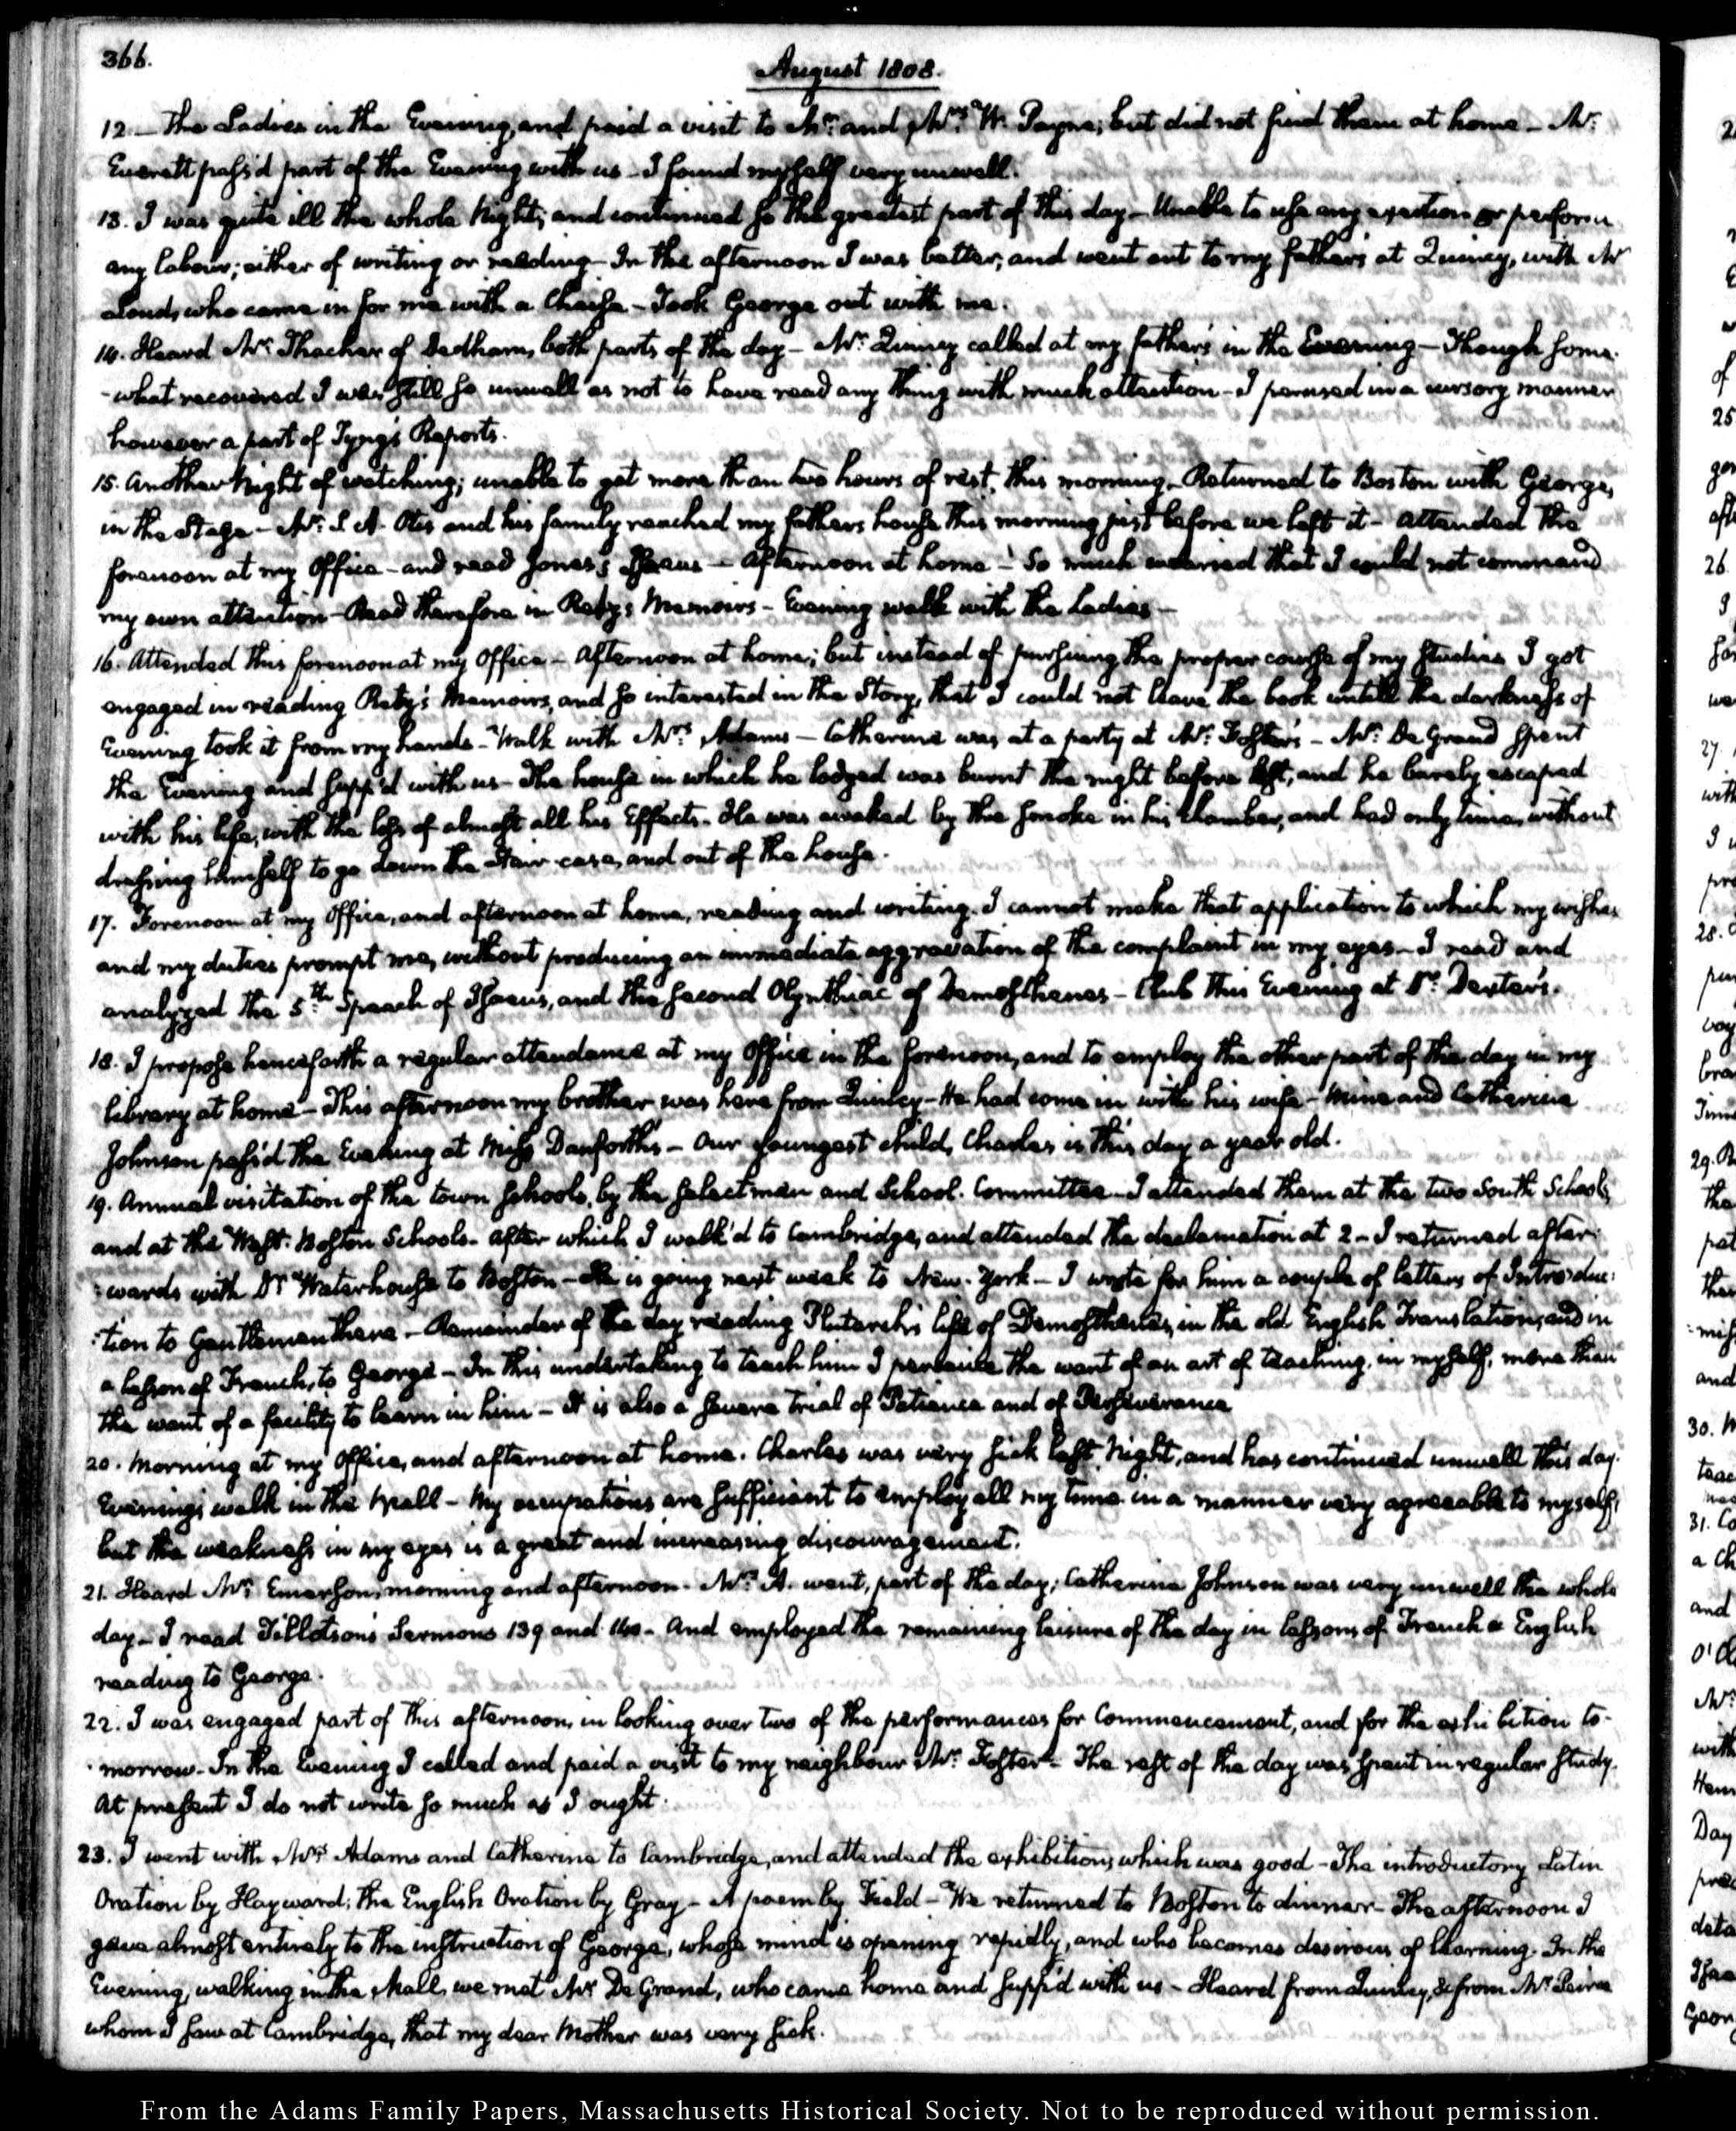 366.
August 1808.
12 — The Ladies in the Evening, and paid a visit to Mr. and Mrs. W. Payne; but did not find them at home — Mr.
Everett pass'd part of the Evening with us — I found myself very unwell.
13. I was quite ill the whole Night; and continued so the greatest part of this day — Unable to use any exertion or perform
any labour; either of writing or reading — In the afternoon I was better; and went out to my father's at Quincy, with Mr
Loud, who came in for me with a Chaise — Took George out with me.
14. Heard Mr. Thacher of Dedham, both parts of the day — Mr. Quincy called at my father's in the Evening — Though some-
-what recovered I was still so unwell as not to have read any thing with much attention — I perused in a cursory manner
however a part of Tyng's Reports.
15. Another Night of watching; unable to get more than two hours of rest, this morning. Returned to Boston with George,
in the Stage — Mr. S. A. Otis and his family reached my fathers house this morning just before we left it — Attended the
forenoon at my Office — and read Jones's Isaeus — Afternoon at home — So much wearied that I could not command
my own attention — Read therefore in Retz's Memoirs — Evening walk with the Ladies —
16. Attended this forenoon at my Office — Afternoon at home; but instead of pursuing the proper course of my Studies I got
engaged in reading Retz's Memoirs, and so interested in the Story, that I could not leave the book untill the darkness of
Evening took it from my hands — Walk with Mrs. Adams — Catherine was at a party at Mr. Foster's — Mr. De Grand spent
the Evening and supp'd with us — The house in which he lodged was burnt the night before last, and he barely escaped
with his life, with the loss of almost all his Effects. He was awaked by the smoke in his Chamber, and had only time, without
dressing himself to go down the stair-case, and out of the house.
17. Forenoon at my Office, and afternoon at home, reading and writing. I cannot make that application to which my wishes
and my duties prompt me, without producing an immediate aggravation of the complaint in my eyes — I read and
analyzed the 5th Speech of Isaeus, and the second Olynthiac of Demosthenes — Club this Evening at Dr. Dexter's.
18. I propose henceforth a regular attendance at my Office in the forenoon, and to employ the other part of the day in my
library at home — This afternoon my brother was here from Quincy — He had come in with his wife — Mine and Catherine
Johnson pass'd the Evening at Miss Danforth's — Our youngest child, Charles is this day a year old.
19. Annual visitation of the town schools, by the Selectmen and School-Committee — I attended them at the two South Schools,
and at the West-Boston Schools — after which I walk'd to Cambridge, and attended the declamation at 2 — I returned after-
-wards with Dr Waterhouse to Boston — He is going next week to New-York — I wrote for him a couple of letters of Introduc:
:tion to Gentlemen there — Remainder of the day reading Plutarch's life of Demosthenes, in the old English Translation; and in
a lesson of French, to George — In this undertaking to teach him I perceive the want of an art of teaching, in myself, more than
the want of a facility to learn in him — It is also a severe trial of Patience and of Perseverance
20. Morning at my Office, and afternoon at home. Charles was very sick last Night, and has continued unwell this day.
Evening walk in the Mall — My occupations are sufficient to employ all my time in a manner very agreeable to myself,
but the weakness in my eyes is a great and increasing discouragement.
21. Heard Mr. Emerson, morning and afternoon. Mrs. A. went, part of the day; Catherine Johnson was very unwell the whole
day — I read Tillotson's Sermons 139 and 140 — And employed the remaining leisure of the day in lessons of French & English
reading to George.
22. I was engaged part of this afternoon, in looking over two of the performances for Commencement, and for the exhibition to-
-morrow — In the Evening I called and paid a visit to my neighbour Mr. Foster — The rest of the day was spent in regular study.
At present I do not write so much as I ought.
23. I went with Mrs Adams and Catherine to Cambridge, and attended the exhibition, which was good — The introductory Latin
Oration by Hayward; the English Oration by Gray — A poem by Field — We returned to Boston to dinner — The afternoon I
gave almost entirely to the instruction of George, whose mind is opening rapidly, and who becomes desirous of learning. In the
Evening, walking in the Mall, we met Mr De Grand, who came home and supp'd with us — Heard from Quincy, & from Mr
whom I saw at Cambridge, that my dear Mother was very sick.
From the Adams Family Papers, Massachusetts Historical Society. Not to be reproduced without permission.